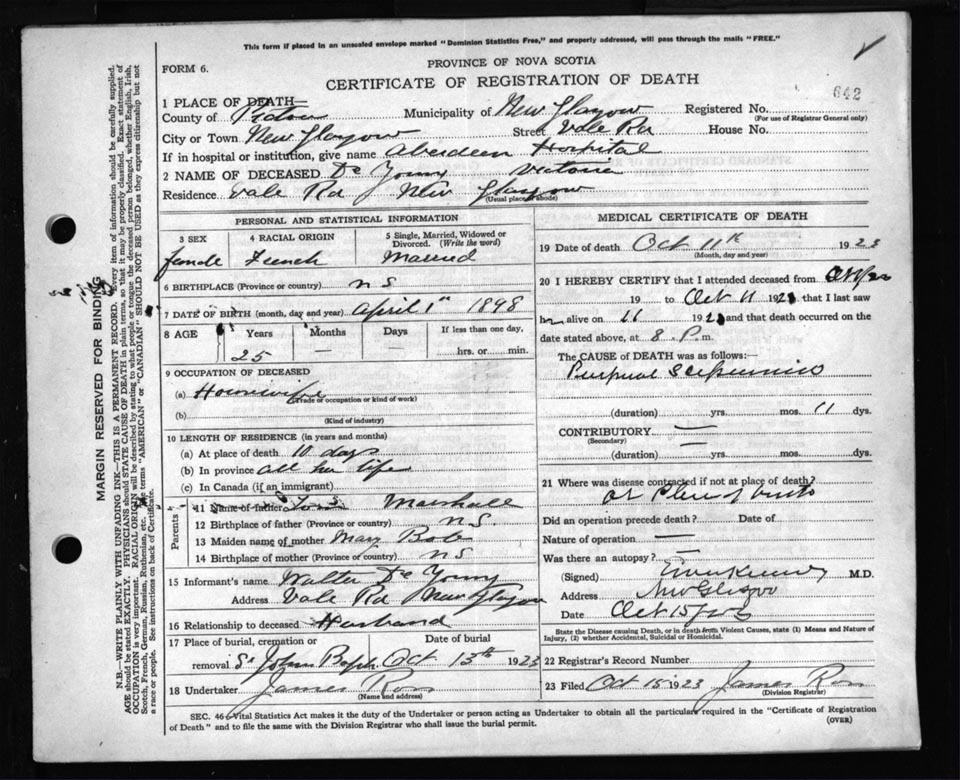 This form if placed in an unsealed envelope marked "Dominion Statistics Free," and properly addressed, will pass through the mails "FREE."
PROVINCE OF NOVA SCOTIA
FORM 6.
CERTIFICATE OF REGISTRATION OF DEATH
642
1 PLACE OF DEATH—
County of Pictou Municipality of New Glasgow Registered No.
(For use of Registrar General only)
City or Town New Glasgow Street Vale Rd House No.
If in hospital or institution, give name Aberdeen Hospital
2 NAME OF DECEASED De Young Victoria
Residence Vale Rd New Glasgow
(Usual place of abode)
PERSONAL AND STATISTICAL INFORMATION
3 SEX 4 RACIAL ORIGIN 5 Single, Married, Widowed or Divorced. (Write the word)
female French Married
6 BIRTHPLACE (Province or country) N S
7 DATE OF BIRTH (month, day and year) April 1st 1898
8 AGE Years Months Days If less than one day,
25 — — hrs. or min.
9 OCCUPATION OF DECEASED
(a) Housewife
(Trade or occupation or kind of work)
(b)
(Kind of industry)
10 LENGTH OF RESIDENCE (in years and months)
(a) At place of death 10 days
(b) In province all her life
(c) In Canada (if an immigrant)
Parents
11 Name of father Marshall
12 Birthplace of father (Province or country) N.S.
13 Maiden name of mother Mary
14 Birthplace of mother (Province or country) N S
15 Informant's name Walter De Young
Address Vale Rd New Glasgow
16 Relationship to deceased Husband
17 Place of burial, cremation or Date of burial
removal St John Bapt. Oct 13th 1923
18 Undertaker James Ross
(Name and address)
MEDICAL CERTIFICATE OF DEATH
19 Date of death Oct 11th 1923
(Month, day and year)
20 I HEREBY CERTIFY that I attended deceased from
19 to Oct 11 1923 that I last saw
her alive on 11 1923 and that death occurred on the
date stated above, at 8 P. m.
The CAUSE of DEATH was as follows:—
Puerperal Septicemia
(duration) yrs. mos. 11 dys.
CONTRIBUTORY —
(Secondary) —
(duration) yrs. mos. dys.
21 Where was disease contracted if not at place of death?
at Place of
Did an operation precede death? Date of
Nature of operation —
Was there an autopsy? —
(Signed) M.D.
Address New Glasgow
Date Oct 15
State the Disease causing Death, or in death from Violent Causes, state (1) Means and Nature of
Injury, (2) whether Accidental, Suicidal or Homicidal.
22 Registrar's Record Number
23 Filed Oct 15 1923 James Ross
(Division Registrar)
SEC. 46 Vital Statistics Act makes it the duty of the Undertaker or person acting as Undertaker to obtain all the particulars required in the "Certificate of Registration
of Death" and to file the same with the Division Registrar who shall issue the burial permit.
(OVER)
MARGIN RESERVED FOR BINDING
N.B.—WRITE PLAINLY WITH UNFADING INK—THIS IS A PERMANENT RECORD. Every item of information should be carefully supplied.
AGE should be stated EXACTLY. PHYSICIANS should STATE CAUSE OF DEATH in plain terms, so that it may be properly classified. Exact statement of
OCCUPATION is very important. RACIAL ORIGIN will be described by stating to what people or tongue the deceased person belonged, whether English, Irish,
Scotch, French, German, Russian, Ruthenian, etc. The terms "AMERICAN" or "CANADIAN" SHOULD NOT BE USED as they express citizenship but not
a race or people. See instructions on back of Certificate.